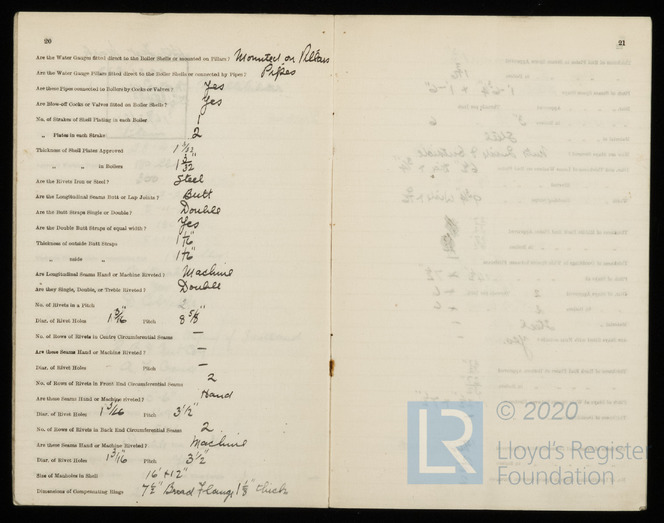 20
Are the Water Gauges fitted direct to the Boiler Shells or mounted on Pillars? Mounted on Pillars
Are the Water Gauge Pillars fitted direct to the Boiler Shells or connected by Pipes? Pipes
Are these Pipes connected to Boilers by Cocks or Valves? Yes
Are Blow-off Cocks or Valves fitted on Boiler Shells? Yes
No. of Strakes of Shell Plating in each Boiler 1
„ Plates in each Strake 2
Thickness of Shell Plates Approved 1 5/32"
„ „ „ in Boilers 1 5/32"
Are the Rivets Iron or Steel? Steel
Are the Longitudinal Seams Butt or Lap Joints? Butt
Are the Butt Straps Single or Double? Double
Are the Double Butt Straps of equal width? Yes
Thickness of outside Butt Straps 1 1/16"
„ inside „ 1 1/16"
Are Longitudinal Seams Hand or Machine Riveted? Machine
Are they Single, Double, or Treble Riveted? Double
No. of Rivets in a Pitch 2
Diar. of Rivet Holes 1 3/16" Pitch 8 5/8"
No. of Rows of Rivets in Centre Circumferential Seams —
Are these Seams Hand or Machine Riveted? —
Diar. of Rivet Holes Pitch —
No. of Rows of Rivets in Front End Circumferential Seams 2
Are these Seams Hand or Machine riveted? Hand
Diar. of Rivet Holes 1 3/16 Pitch 3 1/2"
No. of Rows of Rivets in Back End Circumferential Seams 2
Are these Seams Hand or Machine Riveted? Machine
Diar. of Rivet Holes 1 3/16" Pitch 3 1/2"
Size of Manholes in Shell 16" + 12"
Dimensions of Compensating Rings 7 1/2" Broad Flange 1 1/8" thick
21
LR
© 2020
Lloyd's Register
Foundation